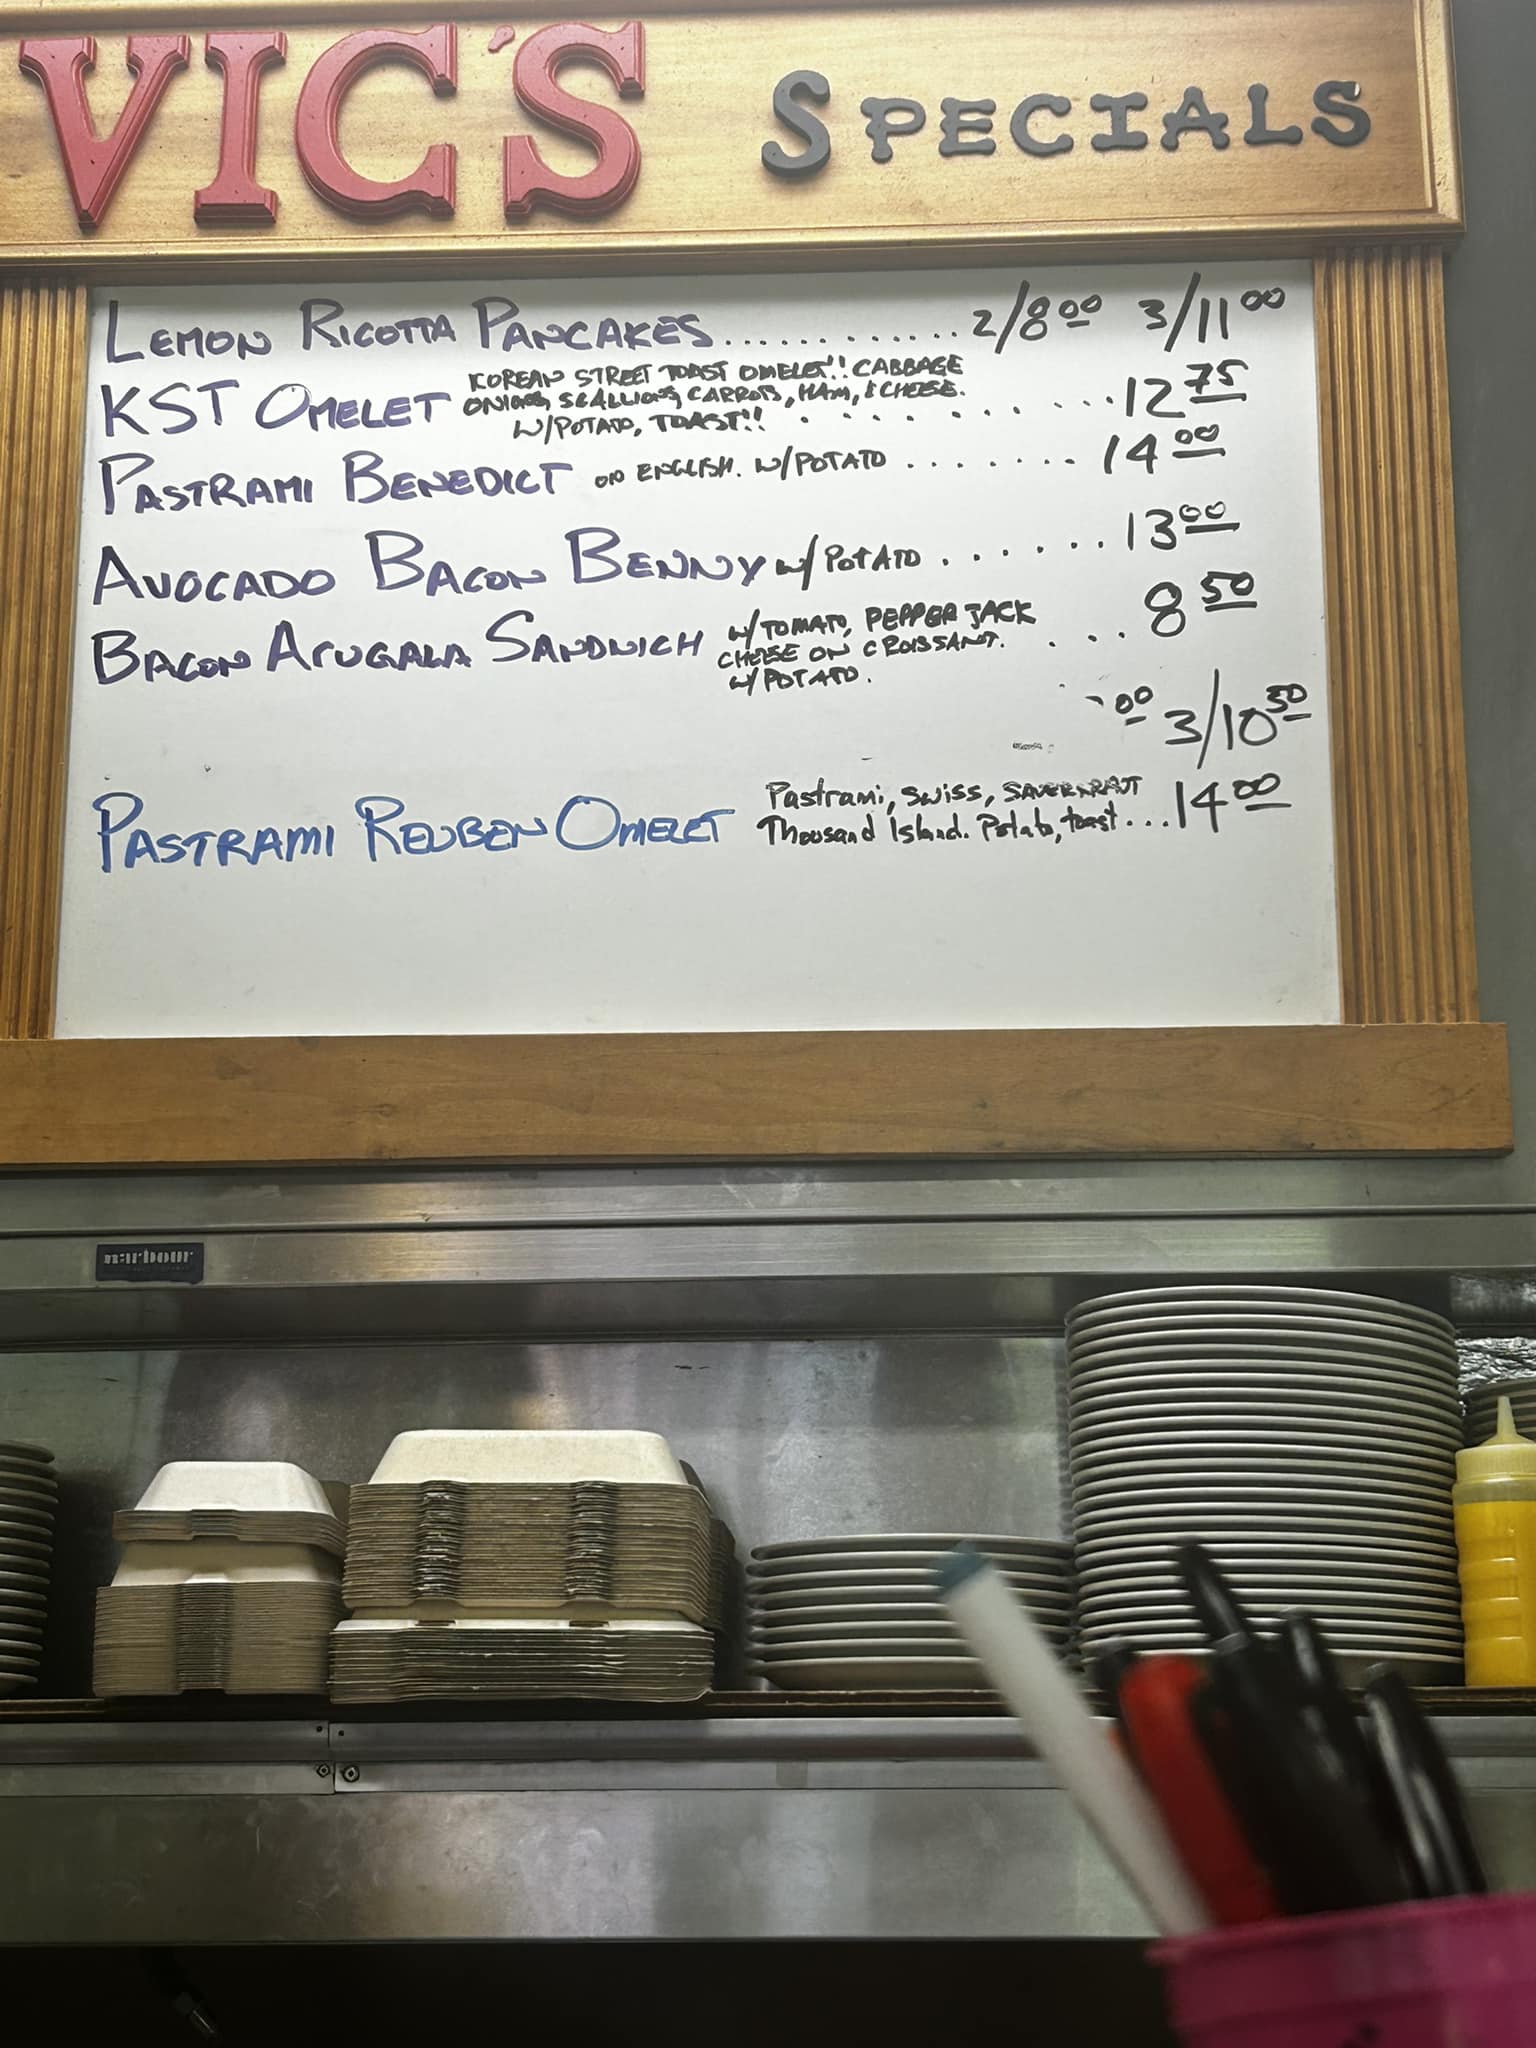 VIC'S SPECIALS
LEMON RICOTTA PANCAKES............2/8 00 3/11 00
KST OMELET KOREAN STREET TOAST OMELET!! CABBAGE
ONIONS, SCALLIONS, CARROTS, HAM, & CHEESE.
W/POTATO, TOAST!! ..........12 75
PASTRAMI BENEDICT ON ENGLISH. W/POTATO .......14 00
AVOCADO BACON BENNY W/POTATO .......13 00
BACON ARUGALA SANDWICH W/TOMATO, PEPPER JACK
CHEESE ON CROISSANT. ....8 50
W/POTATO.
00 3/10 50
PASTRAMI REUBEN OMELET Pastrami, Swiss, SAUERKRAUT
Thousand Island. Potato, toast...14 00
narbour